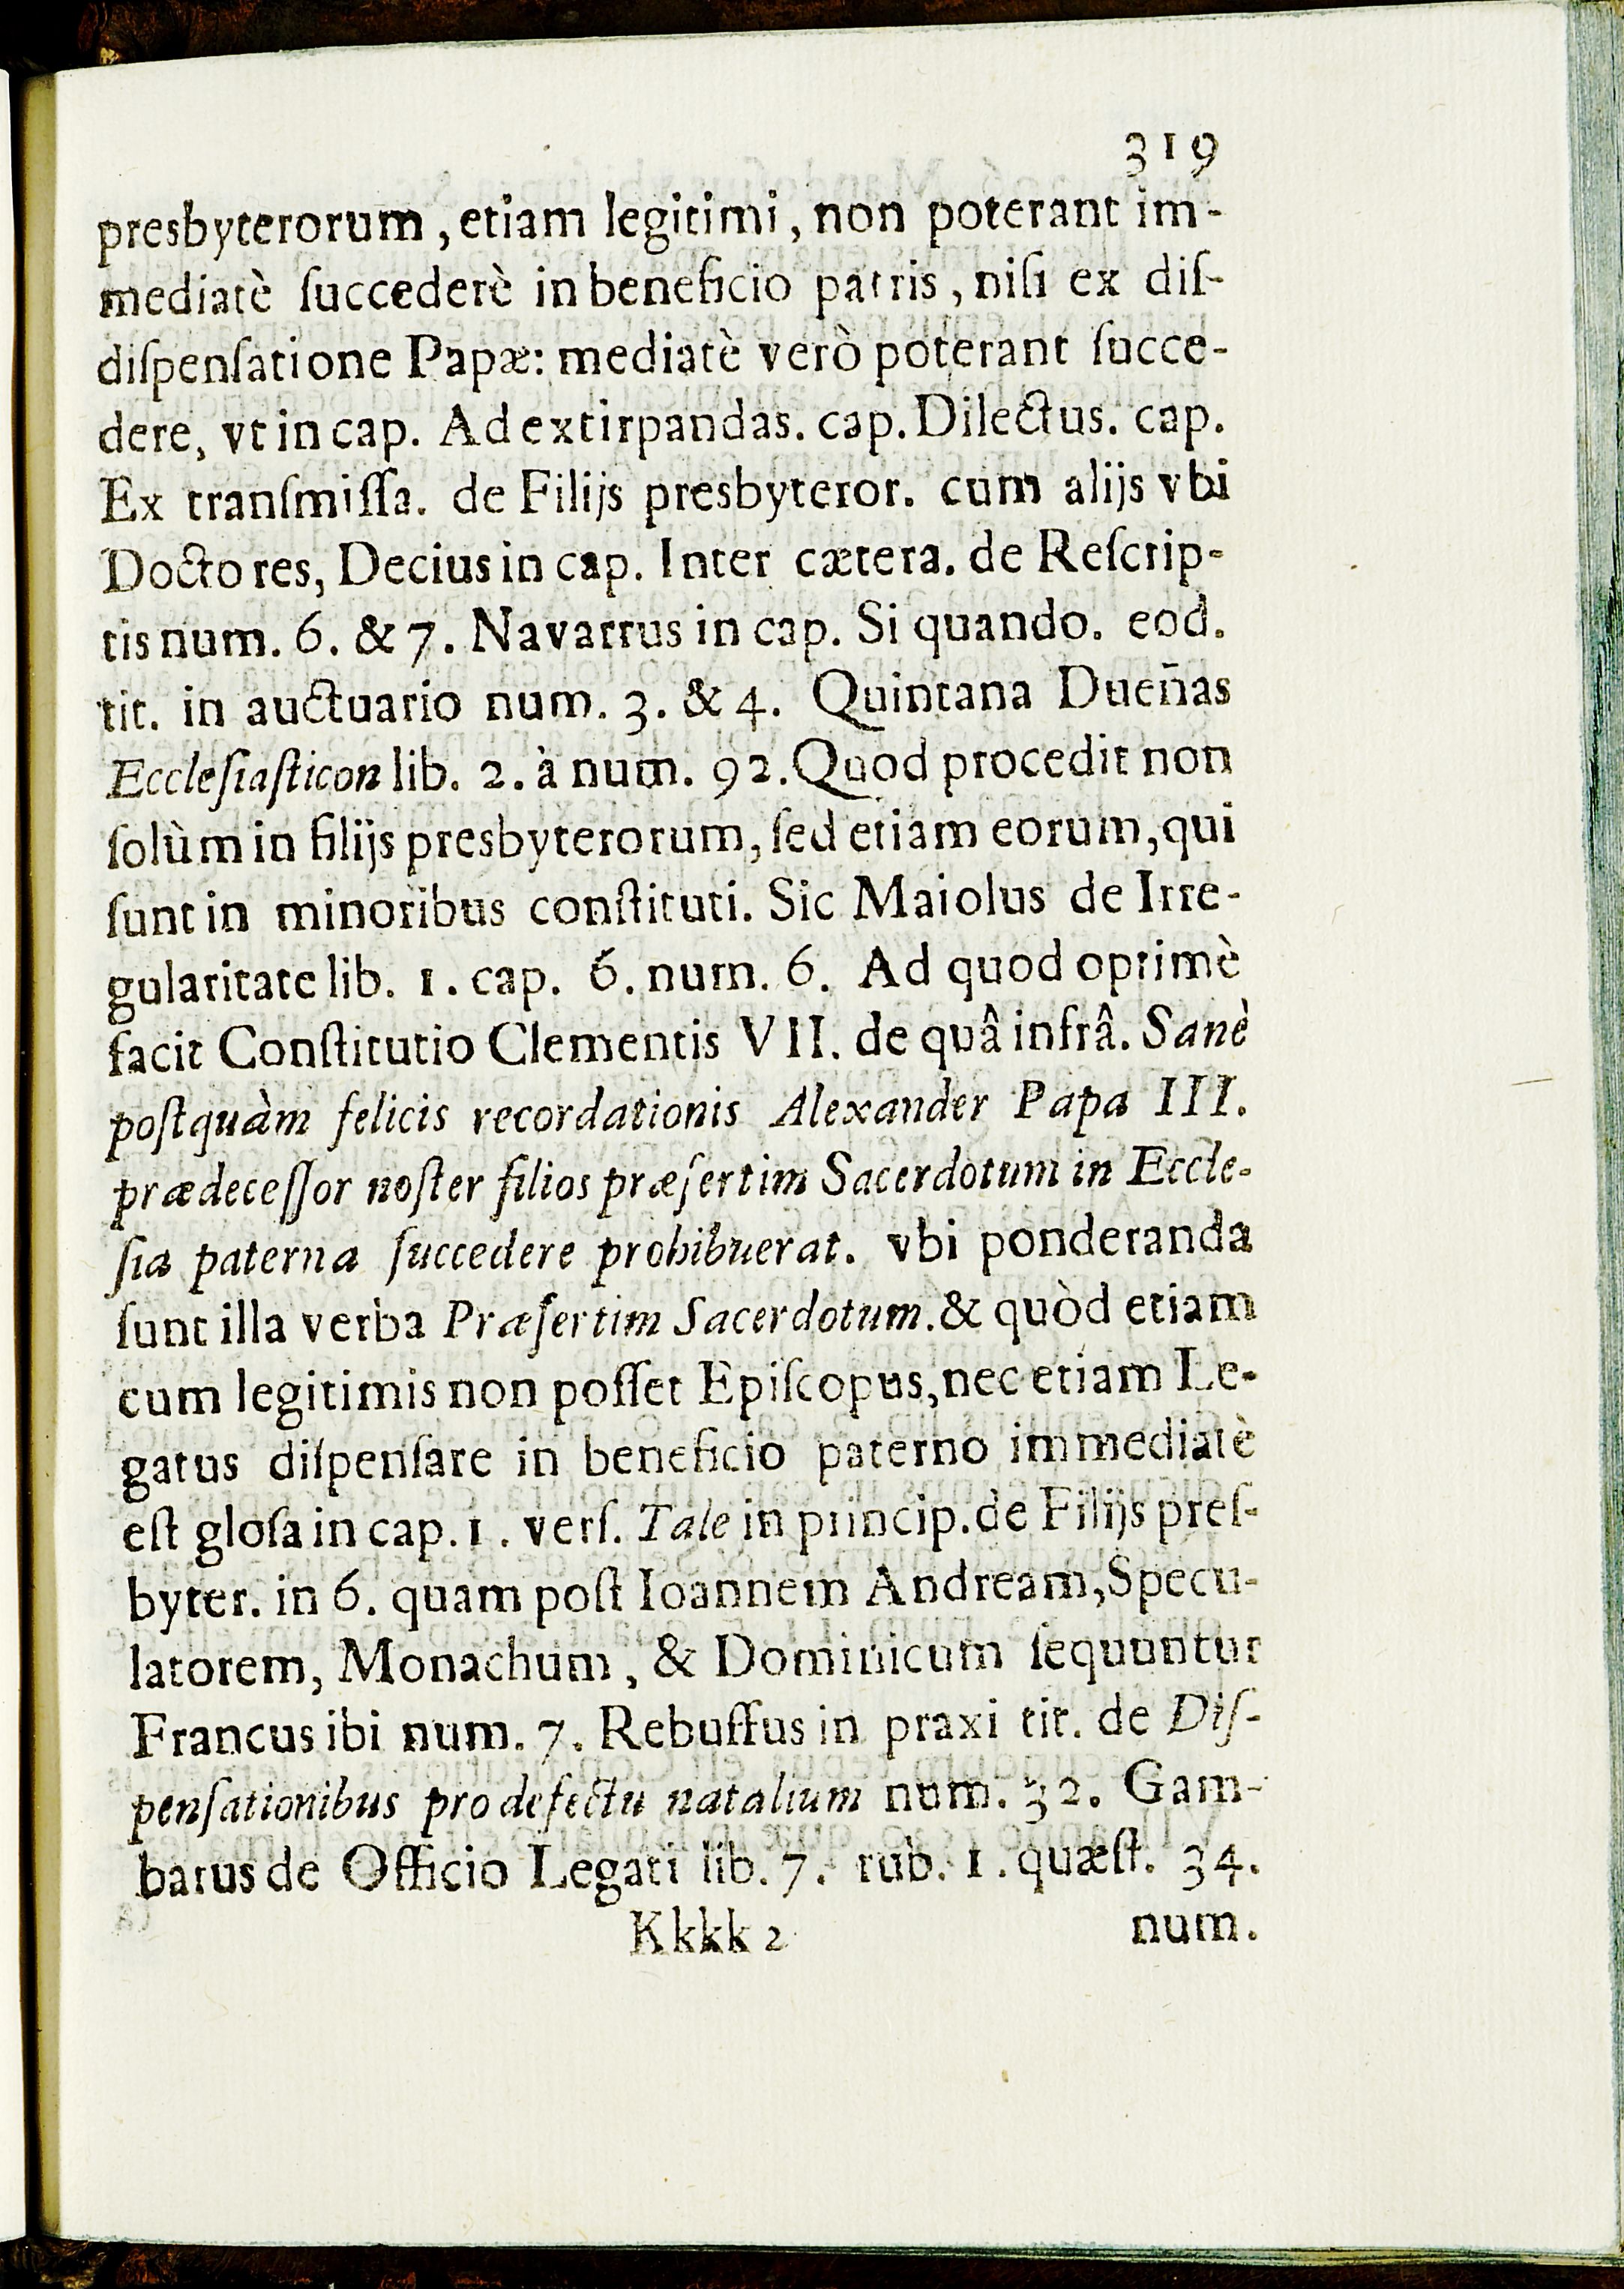 319
presbyterorum, etiam legitimi, non poterant im-
mediatè ſuccederè in beneficio patris, niſi ex diſ-
diſpenſatione Papæ: mediatè verò poterant ſucce-
dere, vt in cap. Ad extirpandas. cap. Dilectus. cap.
Ex tranſmiſſa. de Filijs presbyteror. cum alijs vbi
Doctores, Decius in cap. Inter cætera. de Reſcrip-
tis num. 6. & 7. Navarrus in cap. Si quando. eod.
tit. in auctuario num. 3. & 4. Quintana Dueñas
Eccleſiaſticon lib. 2. à num. 92. Quod procedit non
ſolùm in filijs presbyterorum, ſed etiam eorum, qui
ſunt in minoribus conſtituti. Sic Maiolus de Irre-
gularitate lib. 1. cap. 6. num. 6. Ad quod optimè
facit Conſtitutio Clementis VII. de quâ infrâ. Sanè
poſtquàm felicis recordationis Alexander Papa III.
prædeceſſor noſter filios præſertim Sacerdotum in Eccle-
ſia paterna ſuccedere prohibuerat. vbi ponderanda
ſunt illa verba Præſertim Sacerdotum. & quòd etiam
cum legitimis non poſſet Epiſcopus, nec etiam Le-
gatus diſpenſare in beneficio paterno immediatè
eſt gloſa in cap. 1. verſ. Tale in princip. de Filijs preſ-
byter. in 6. quam poſt Ioannem Andream, Specu-
latorem, Monachum, & Dominicum ſequuntur
Francus ibi num. 7. Rebuffus in praxi tit. de Diſ-
penſationibus pro defectu natalium num. 32. Gam-
barus de Officio Legati lib. 7. rub. 1. quæſt. 34.
Kkkk 2 num.